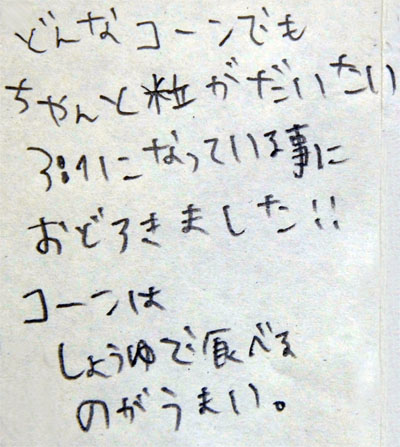 どんなコーンでも
ちゃんと粒がだいたい
3:1になっている事に
おどろきました!!
コーンは
しょうゆで食べる
のがうまい。